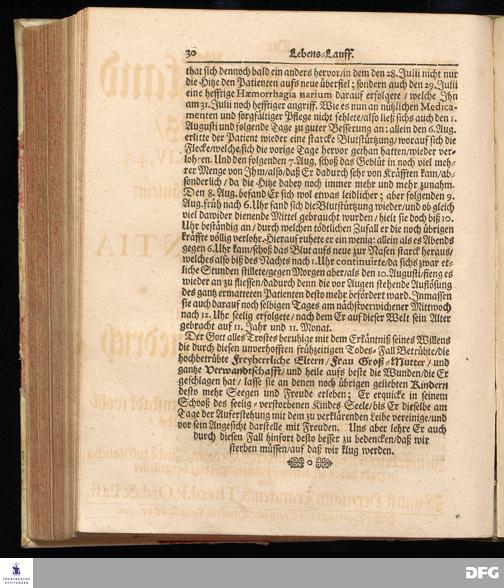 30 Lebens-Lauff.
that sich dennoch bald ein anders hervor/in dem den 28. Julii nicht nur
die Hitze den Patienten aufs neue überfiel; sondern auch den 29. Julii
eine hefftige Hæmorrhagia narium darauf erfolgete / welche Ihn
am 31. Julii noch hefftiger angriff. Wie es nun an nützlichen Medica-
menten und sorgfältiger Pflege nicht fehlete/also ließ sichs auch den 1.
Augusti und folgende Tage zu guter Besserung an: allein den 6. Aug.
erlitte der Patient wieder eine starcke Blutstürtzung/worauf sich die
Flecke/welche sich die vorige Tage hervor gethan hatten/wieder ver-
lohren. Und den folgenden 7. Aug. schoß das Geblüt in noch viel meh-
rer Menge von Ihm/also/daß Er dadurch sehr von Kräfften kam/ab-
sonderlich / da die Hitze dabey noch immer mehr und mehr zunahm.
Den 8. Aug. befand Er sich wol etwas leidlicher; aber folgenden 9.
Aug. früh nach 6. Uhr fand sich die Blutstürtzung wieder/und ob gleich
viel dawider dienende Mittel gebraucht wurden / hielt sie doch biß 10.
Uhr beständig an / durch welchen tödtlichen Zufall er die noch übrigen
Kräffte völlig verlohr. Hierauf ruhete er ein wenig: allein als es Abends
gegen 6. Uhr kam/schoß das Blut aufs neue zur Nasen starck heraus/
welches also biß des Nachts nach 1. Uhr continuirte/da sichs zwar et-
liche Stunden stillete/gegen Morgen aber/als den 10. Augusti/fieng es
wieder an zu fliessen/dadurch denn die vor Augen stehende Auflösung
des gantz ermatteten Patienten desto mehr befördert ward. Inmassen
sie auch darauf noch selbigen Tages am nächstverwichener Mittwoch
nach 12. Uhr seelig erfolgete / nach dem Er auf dieser Welt sein Alter
gebracht auf 11. Jahr und 11. Monat.
Der Gott alles Trostes beruhige mit dem Erkäntniß seines Willens
die durch diesen unverhofften frühzeitigen Todes-Fall Betrübte/die
hochbetrübte Freyherrliche Eltern/ Frau Groß-Mutter / und
gantze Verwandtschafft/ und heile aufs beste die Wunden/die Er
geschlagen hat / lasse sie an denen noch übrigen geliebten Kindern
desto mehr Seegen und Freude erleben; Er erquicke in seinem
Schooß des seelig-verstorbenen Kindes Seele/biß Er dieselbe am
Tage der Auferstehung mit dem zu verklärenden Leibe vereinige/und
vor sein Angesicht darstelle mit Freuden. Uns aber lehre Er auch
durch diesen Fall hinfort desto besser zu bedencken/daß wir
sterben müssen/auf daß wir klug werden.
FRANCKESCHE
STIFTUNGEN
DFG